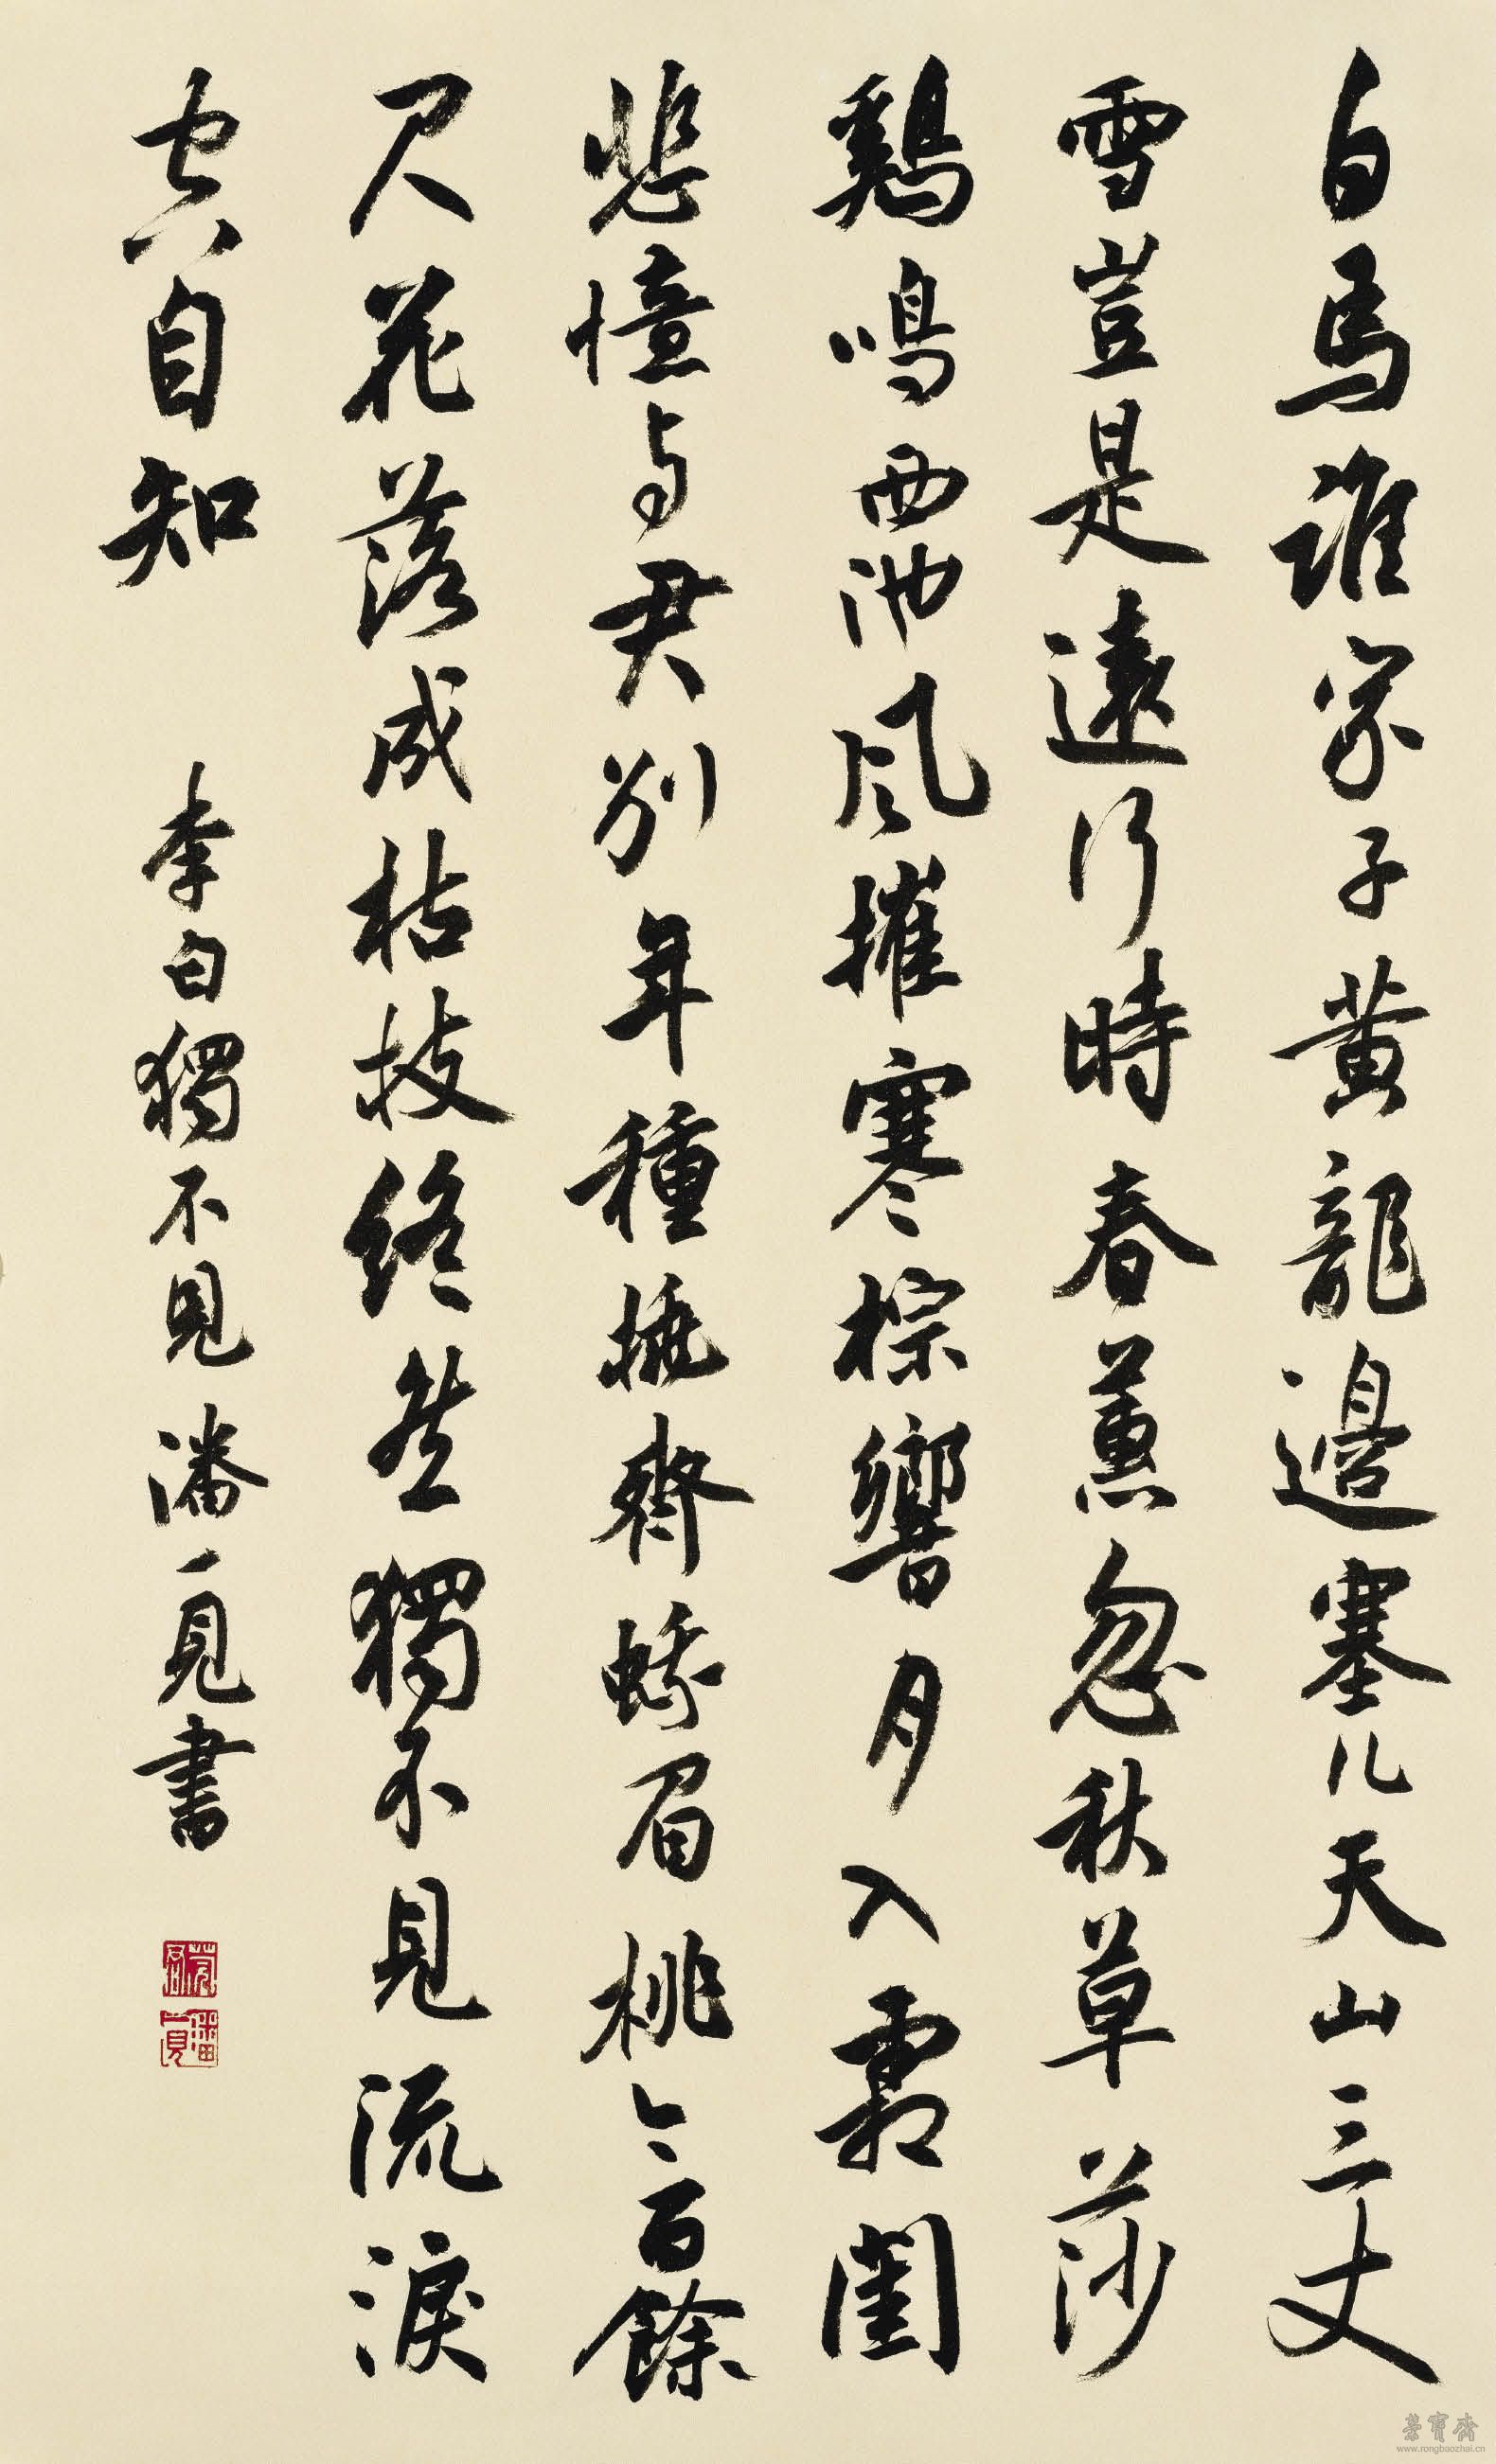 白馬誰家子黄龍邊塞儿天山三丈
雪豈是遠行時春蕙忽秋草莎
鷄鳴西池風摧寒棕響月入霜閨
悲憶与君别年種桃齊蛾眉桃今百餘
尺花落成枯枝終然獨不見流淚
空自知
李白獨不見潘一見書
榮寳齋
www.rongbaozhai.cn